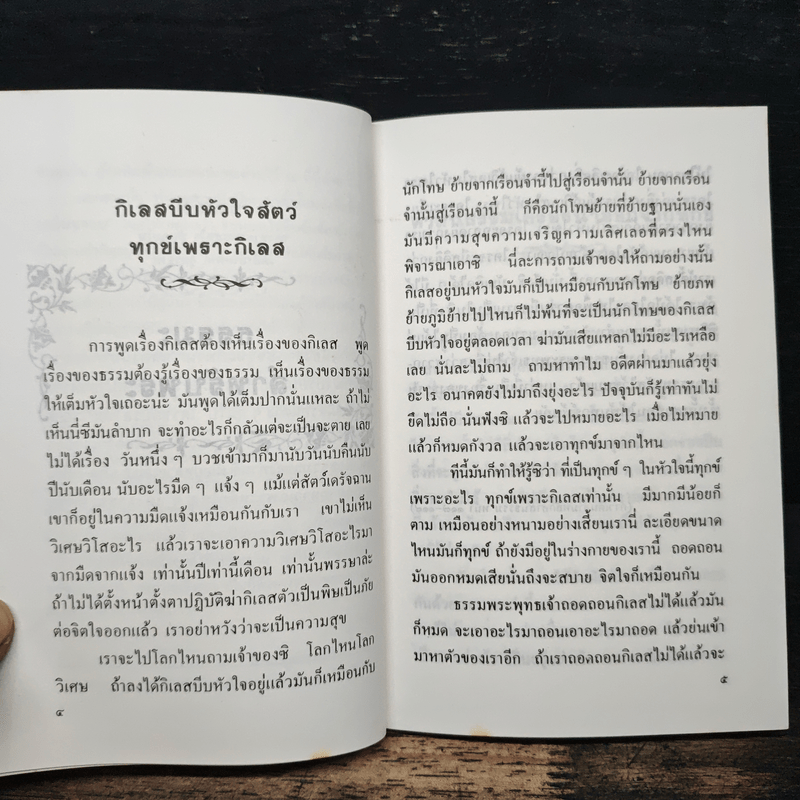 กิเลสบีบหัวใจสัตว์
ทุกข์เพราะกิเลส
การพูดเรื่องกิเลสต้องเห็นเรื่องของกิเลส พูด
เรื่องของธรรมต้องรู้เรื่องของธรรม เห็นเรื่องของธรรม
ให้เต็มหัวใจเถอะน่ะ มันพูดได้เต็มปากนั่นแหละ ถ้าไม่
เห็นนี่ซีมันลำบาก จะทำอะไรก็กลัวแต่จะเป็นจะตาย เลย
ไม่ได้เรื่อง วันหนึ่ง ๆ บวชเข้ามาก็มานับวันนับคืนนับ
ปีนับเดือน นับอะไรมืด ๆ แจ้ง ๆ แม้แต่สัตว์เดรัจฉาน
เขาก็อยู่ในความมืดแจ้งเหมือนกันกับเรา เขาไม่เห็น
วิเศษวิโสอะไร แล้วเราจะเอาความวิเศษวิโสอะไรมา
จากมืดจากแจ้ง เท่านั้นปีเท่านี้เดือน เท่านั้นพรรษาล่ะ
ถ้าไม่ได้ตั้งหน้าตั้งตาปฏิบัติฆ่ากิเลสตัวเป็นพิษเป็นภัย
ต่อจิตใจออกแล้ว เราอย่าหวังว่าจะเป็นความสุข
เราจะไปโลกไหนถามเจ้าของซิ โลกไหนโลก
วิเศษ ถ้าลงได้กิเลสบีบหัวใจอยู่แล้วมันก็เหมือนกับ
๔
นักโทษ ย้ายจากเรือนจำนี้ไปสู่เรือนจำนั้น ย้ายจากเรือน
จำนั้นสู่เรือนจำนี้ ก็คือนักโทษย้ายที่ย้ายฐานนั่นเอง
มันมีความสุขความเจริญความเลิศเลอที่ตรงไหน
พิจารณาเอาซิ นี่ละการถามเจ้าของให้ถามอย่างนั้น
กิเลสอยู่บนหัวใจมันก็เป็นเหมือนกับนักโทษ ย้ายภพ
ย้ายภูมิย้ายไปไหนก็ไม่พ้นที่จะเป็นนักโทษของกิเลส
บีบหัวใจอยู่ตลอดเวลา ฆ่ามันเสียแหลกไม่มีอะไรเหลือ
เลย นั่นละไม่ถาม ถามหาทำไม อดีตผ่านมาแล้วยุ่ง
อะไร อนาคตยังไม่มาถึงยุ่งอะไร ปัจจุบันก็รู้เท่าทันไม่
ยึดไม่ถือ นั่นฟังซิ แล้วจะไปหมายอะไร เมื่อไม่หมาย
แล้วก็หมดกังวล แล้วจะเอาทุกข์มาจากไหน
ทีนี้มันก็ทำให้รู้ซิว่า ที่เป็นทุกข์ ๆ ในหัวใจนี้ทุกข์
เพราะอะไร ทุกข์เพราะกิเลสเท่านั้น มีมากมีน้อยก็
ตาม เหมือนอย่างหนามอย่างเสี้ยนเรานี่ ละเอียดขนาด
ไหนมันก็ทุกข์ ถ้ายังมีอยู่ในร่างกายของเรานี้ ถอดถอน
มันออกหมดเสียนั่นถึงจะสบาย จิตใจก็เหมือนกัน
ธรรมพระพุทธเจ้าถอดถอนกิเลสไม่ได้แล้วมัน
ก็หมด จะเอาอะไรมาถอนเอาอะไรมาถอด แล้วย่นเข้า
มาหาตัวของเราอีก ถ้าเราถอดถอนกิเลสไม่ได้แล้วจะ
๕